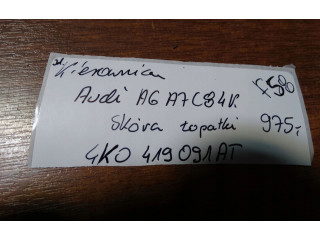 Kierownica £56
Audi A6 A7 C8 4K
Skóra łopatki 975,-
4K0 419 091 AT